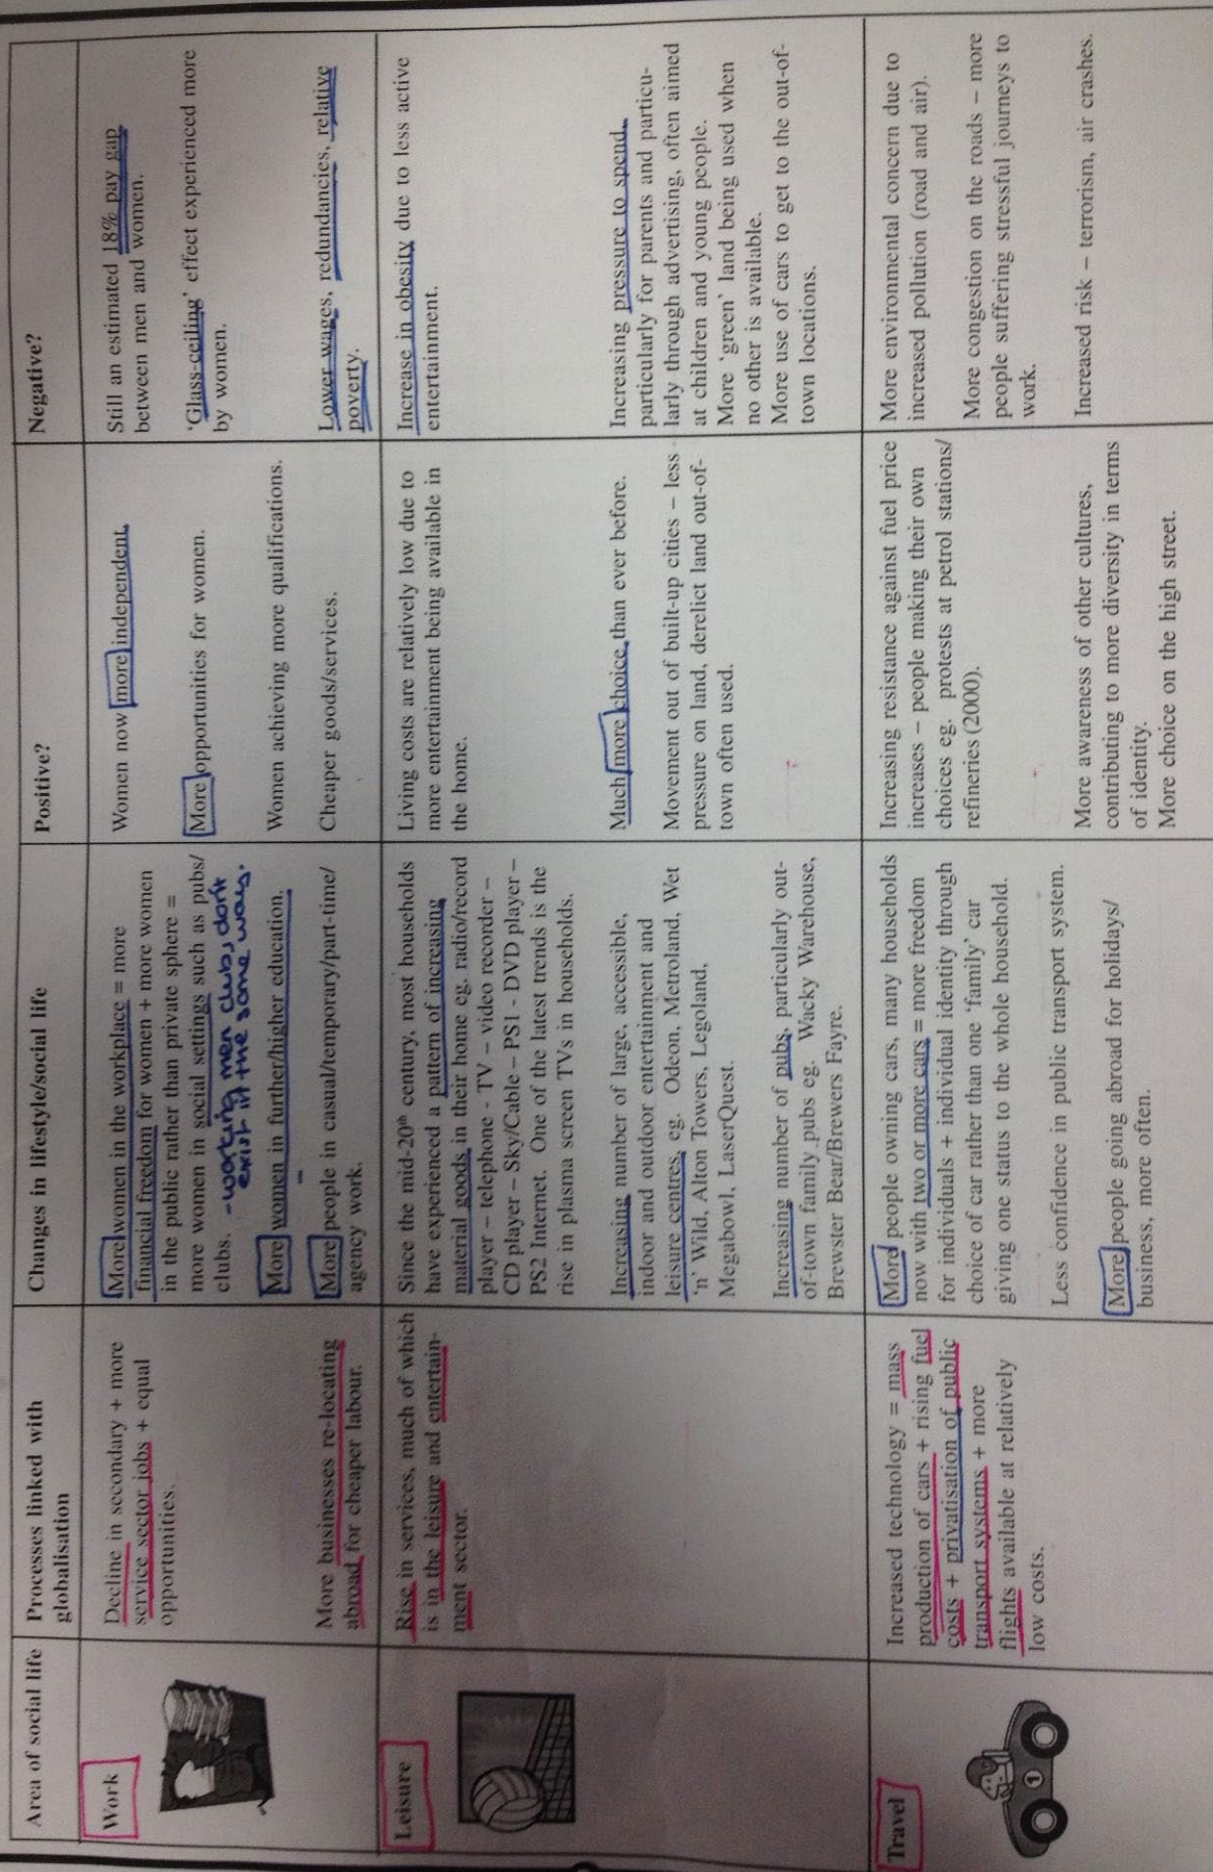 Area of social life
Processes linked with
globalisation
Changes in lifestyle/social life
Positive?
Negative?
Work
Decline in secondary + more
service sector jobs + equal
opportunities.
More businesses re-locating
abroad for cheaper labour.
More women in the workplace = more
financial freedom for women + more women
in the public rather than private sphere =
more women in social settings such as pubs/
clubs.
- working men clubs don't
exist in the same way.
More women in further/higher education.
More people in casual/temporary/part-time/
agency work.
Women now more independent.
More opportunities for women.
Women achieving more qualifications.
Cheaper goods/services.
Still an estimated 18% pay gap
between men and women.
'Glass-ceiling' effect experienced more
by women.
Lower wages, redundancies, relative
poverty.
Leisure
Rise in services, much of which
is in the leisure and entertain-
ment sector.
Since the mid-20th century, most households
have experienced a pattern of increasing
material goods in their home eg. radio/record
player – telephone - TV – video recorder –
CD player – Sky/Cable – PS1 - DVD player –
PS2 Internet. One of the latest trends is the
rise in plasma screen TVs in households.
Increasing number of large, accessible,
indoor and outdoor entertainment and
leisure centres, eg. Odeon, Metroland, Wet
'n' Wild, Alton Towers, Legoland,
Megabowl, LaserQuest.
Increasing number of pubs, particularly out-
of-town family pubs eg. Wacky Warehouse,
Brewster Bear/Brewers Fayre.
Living costs are relatively low due to
more entertainment being available in
the home.
Much more choice than ever before.
Movement out of built-up cities – less
pressure on land, derelict land out-of-
town often used.
Increase in obesity due to less active
entertainment.
Increasing pressure to spend,
particularly for parents and particu-
larly through advertising, often aimed
at children and young people.
More 'green' land being used when
no other is available.
More use of cars to get to the out-of-
town locations.
Travel
1
Increased technology = mass
production of cars + rising fuel
costs + privatisation of public
transport systems + more
flights available at relatively
low costs.
More people owning cars, many households
now with two or more cars = more freedom
for individuals + individual identity through
choice of car rather than one 'family' car
giving one status to the whole household.
Less confidence in public transport system.
More people going abroad for holidays/
business, more often.
Increasing resistance against fuel price
increases – people making their own
choices eg. protests at petrol stations/
refineries (2000).
More awareness of other cultures,
contributing to more diversity in terms
of identity.
More choice on the high street.
More environmental concern due to
increased pollution (road and air).
More congestion on the roads – more
people suffering stressful journeys to
work.
Increased risk – terrorism, air crashes.